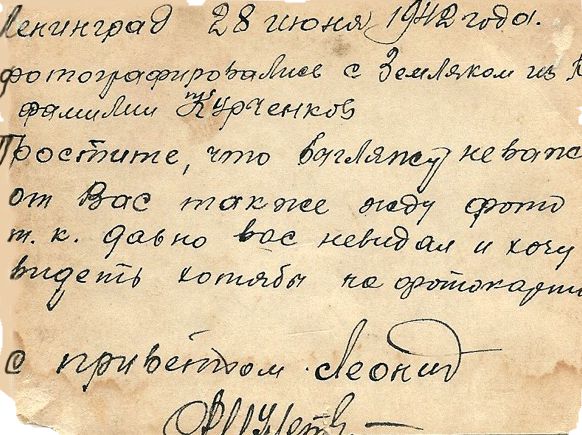 Ленинград 28 июня 1942 года.
фотографировались с Земляком из К
фамилии Курченков
Простите, что выгляжу неваж
от Вас также жду фото
т.к. давно вас невидал и хочу
видеть хотябы на фотокарти
с приветом Леонид